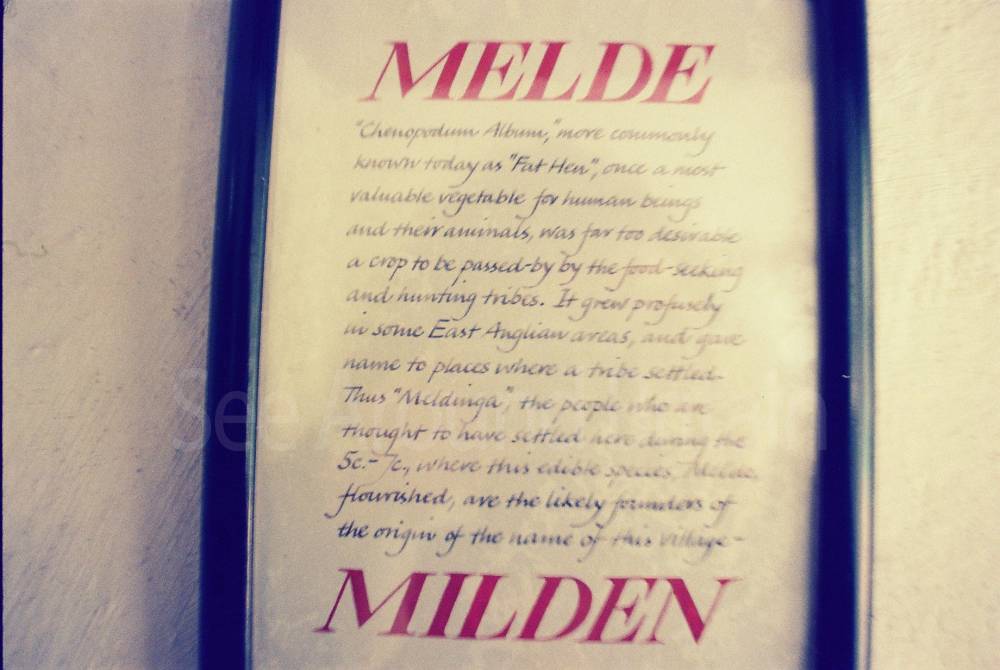 MELDE
"Chenopodium Album," more commonly
known today as "Fat Hen", once a most
valuable vegetable for human beings
and their animals, was far too desirable
a crop to be passed-by by the food-seeking
and hunting tribes. It grew profusely
in some East Anglian areas, and gave
name to places where a tribe settled.
Thus "Meldinga", the people who are
thought to have settled here during the
5c.- 7c., where this edible species, Melde,
flourished, are the likely founders of
the origin of the name of this village-
MILDEN
See